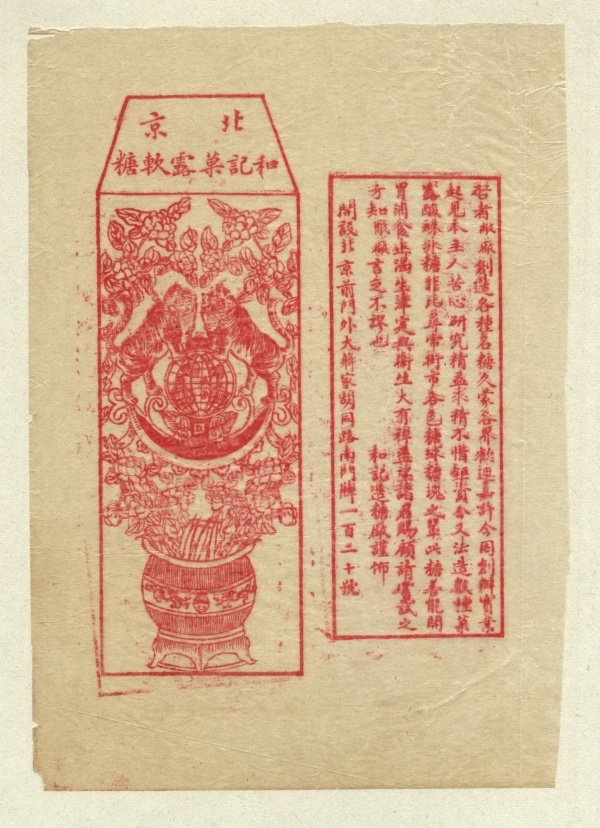 北京
和記菓露軟糖
啓者敝廠創造各種名糖久蒙各界歡迎嘉許今因創辦實業
起見本主人苦心研究精益求精不惜鉅資今又法造數種菓
露酸球氷糖非比尋常街市各色糖球糖塊之輩此糖善能開
胃消食止渴生津定與衛生大有裨益望諸君賜顧請嘗試之
方知敝廠言之不謬也 和記造糖廠謹佈
開設北京前門外大蔣家胡同路南門牌一百二十號